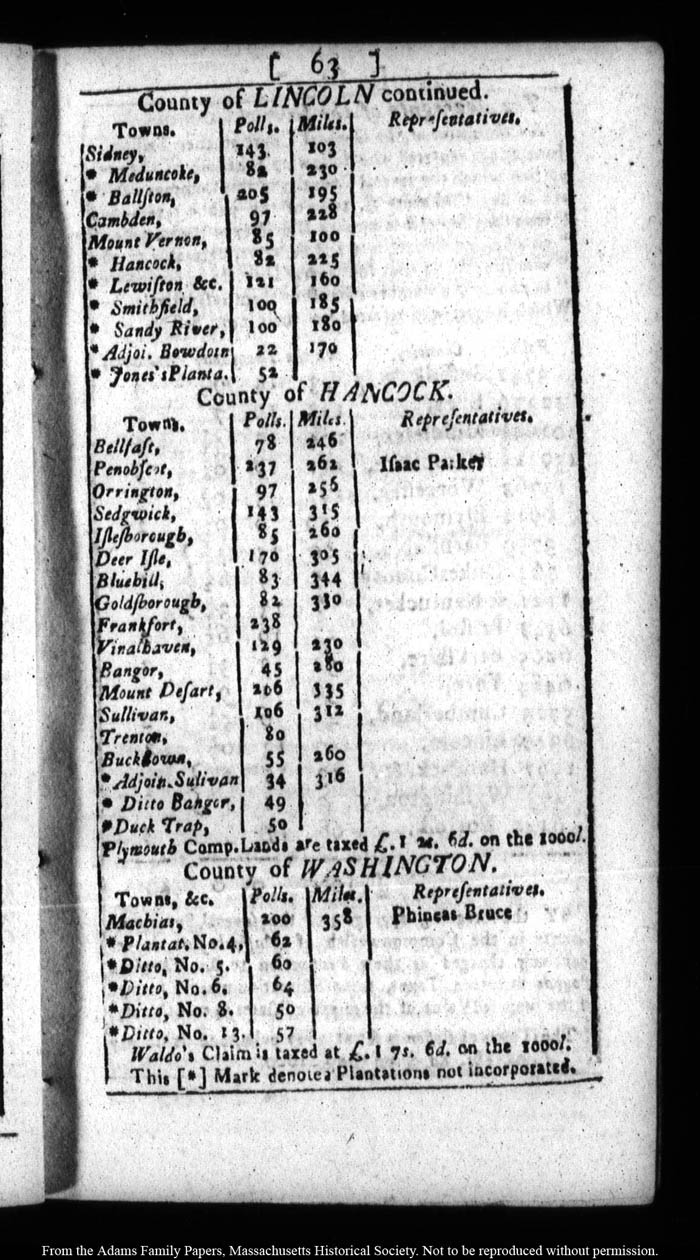 [ 63 ]
County of LINCOLN continued.
Towns. Polls. Miles. Repreſentatives.
Sidney, 143 103
* Meduncoke, 82 230
* Ballſton, 205 195
Cambden, 97 228
Mount Vernon, 85 100
* Hancock, 82 225
* Lewiſton &c. 121 160
* Smithfield, 100 185
* Sandy River, 100 180
* Adjoi. Bowdoin 22 170
* Jones's Planta. 52
County of HANCOCK.
Towns. Polls. Miles. Repreſentatives.
Bellfaſt, 78 246
Penobſcot, 237 262 Iſaac Parker
Orrington, 97 256
Sedgwick, 143 315
Iſleſborough, 85 260
Deer Iſle, 170 305
Bluehill, 83 344
Goldſborough, 82 330
Frankfort, 238
Vinalhaven, 129 230
Bangor, 45 280
Mount Deſart, 206 335
Sullivan, 106 312
Trenton, 80
Buckſtown, 55 260
* Adjoin. Sulivan 34 316
* Ditto Bangor, 49
* Duck Trap, 50
Plymouth Comp. Lands are taxed £. 1 2s. 6d. on the 1000l.
County of WASHINGTON.
Towns, &c. Polls. Miles. Repreſentatives.
Machias, 200 358 Phineas Bruce
* Plantat. No. 4, 62
* Ditto, No. 5. 60
* Ditto, No. 6. 64
* Ditto, No. 8. 50
* Ditto, No. 13. 57
Waldo's Claim is taxed at £. 1 7s. 6d. on the 1000l.
This [*] Mark denotes Plantations not incorporated.
From the Adams Family Papers, Massachusetts Historical Society. Not to be reproduced without permission.